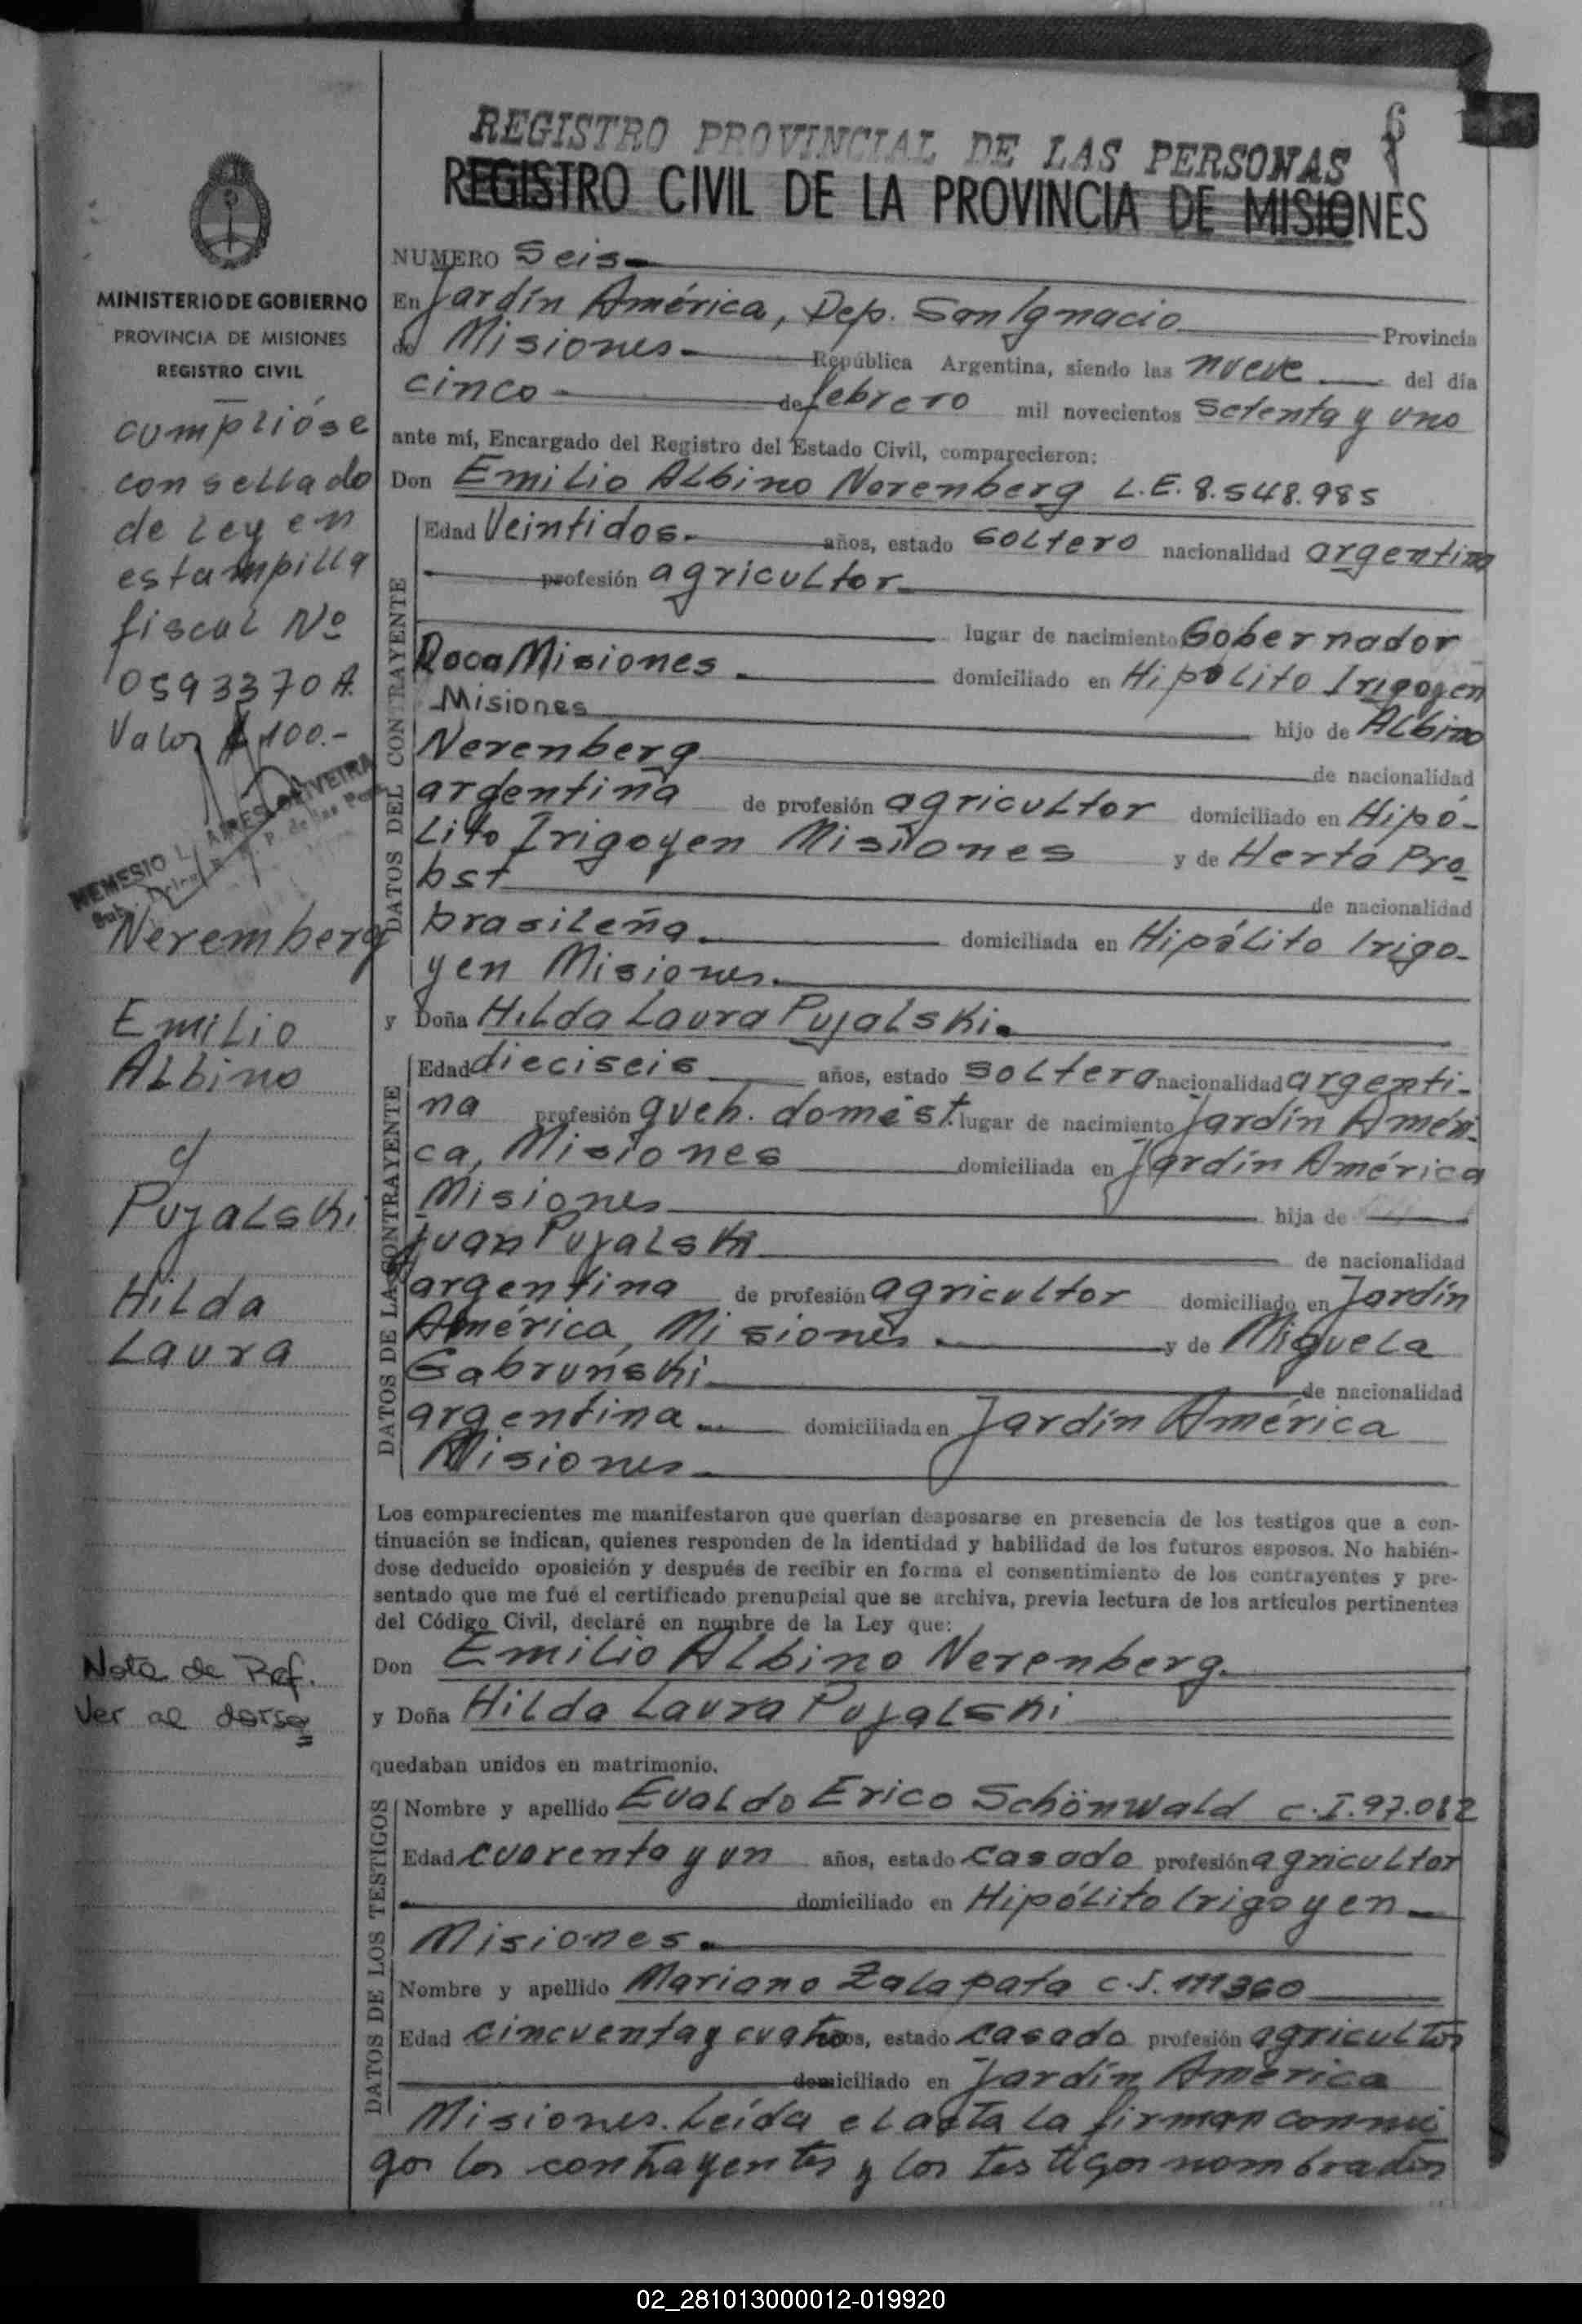 REGISTRO PROVINCIAL DE LAS PERSONAS
6
REGISTRO CIVIL DE LA PROVINCIA DE MISIONES
MINISTERIO DE GOBIERNO
PROVINCIA DE MISIONES
REGISTRO CIVIL
cumplióse
con sellado
de Ley en
estampilla
fiscal Nº
0593370 A.
Valor $ 100.-
NEMESIO L. AIRES OLIVEIRA
Neremberg
Emilio
Albino
y
Pujalski
Hilda
Laura
Nota de Ref.
Ver al dorso
NUMERO Seis
En Jardín América, Dep. San Ignacio Provincia
de Misiones República Argentina, siendo las nueve del día
cinco de febrero mil novecientos setenta y uno
ante mí, Encargado del Registro del Estado Civil, comparecieron:
Don Emilio Albino Nerenberg L.E. 8.548.985
DATOS DEL CONTRAYENTE
Edad Veintidos. años, estado soltero nacionalidad argentina
profesión agricultor
lugar de nacimiento Gobernador
Roca Misiones domiciliado en Hipólito Irigoyen
Misiones hijo de Albino
Nerenberg de nacionalidad
argentina de profesión agricultor domiciliado en Hipó-
lito Irigoyen Misiones y de Herta Pro-
bst de nacionalidad
brasileña domiciliada en Hipólito Irigo-
yen Misiones.
y Doña Hilda Laura Pujalski.
DATOS DE LA CONTRAYENTE
Edad dieciseis años, estado soltera nacionalidad argenti-
na profesión queh. domést. lugar de nacimiento Jardín Améri-
ca, Misiones domiciliada en Jardín América
Misiones hija de
Juan Pujalski de nacionalidad
argentina de profesión agricultor domiciliado en Jardín
América, Misiones. y de Miguela
Gabrunski de nacionalidad
argentina domiciliada en Jardín América
Misiones
Los comparecientes me manifestaron que querían desposarse en presencia de los testigos que a con-
tinuación se indican, quienes responden de la identidad y habilidad de los futuros esposos. No habién-
dose deducido oposición y después de recibir en forma el consentimiento de los contrayentes y pre-
sentado que me fué el certificado prenupcial que se archiva, previa lectura de los artículos pertinentes
del Código Civil, declaré en nombre de la Ley que:
Don Emilio Albino Nerenberg
y Doña Hilda Laura Pujalski
quedaban unidos en matrimonio.
DATOS DE LOS TESTIGOS
Nombre y apellido Evaldo Erico Schönwald C.I. 97.082
Edad cuarenta y un años, estado casado profesión agricultor
domiciliado en Hipólito Irigoyen
Misiones.
Nombre y apellido Mariano Zalapata C.I. 111360
Edad cincuenta y cuatro años, estado casado profesión agricultor
domiciliado en Jardín América
Misiones. Leída el acta la firman conmi
go los contrayentes y los testigos nombrados
02_281013000012-019920